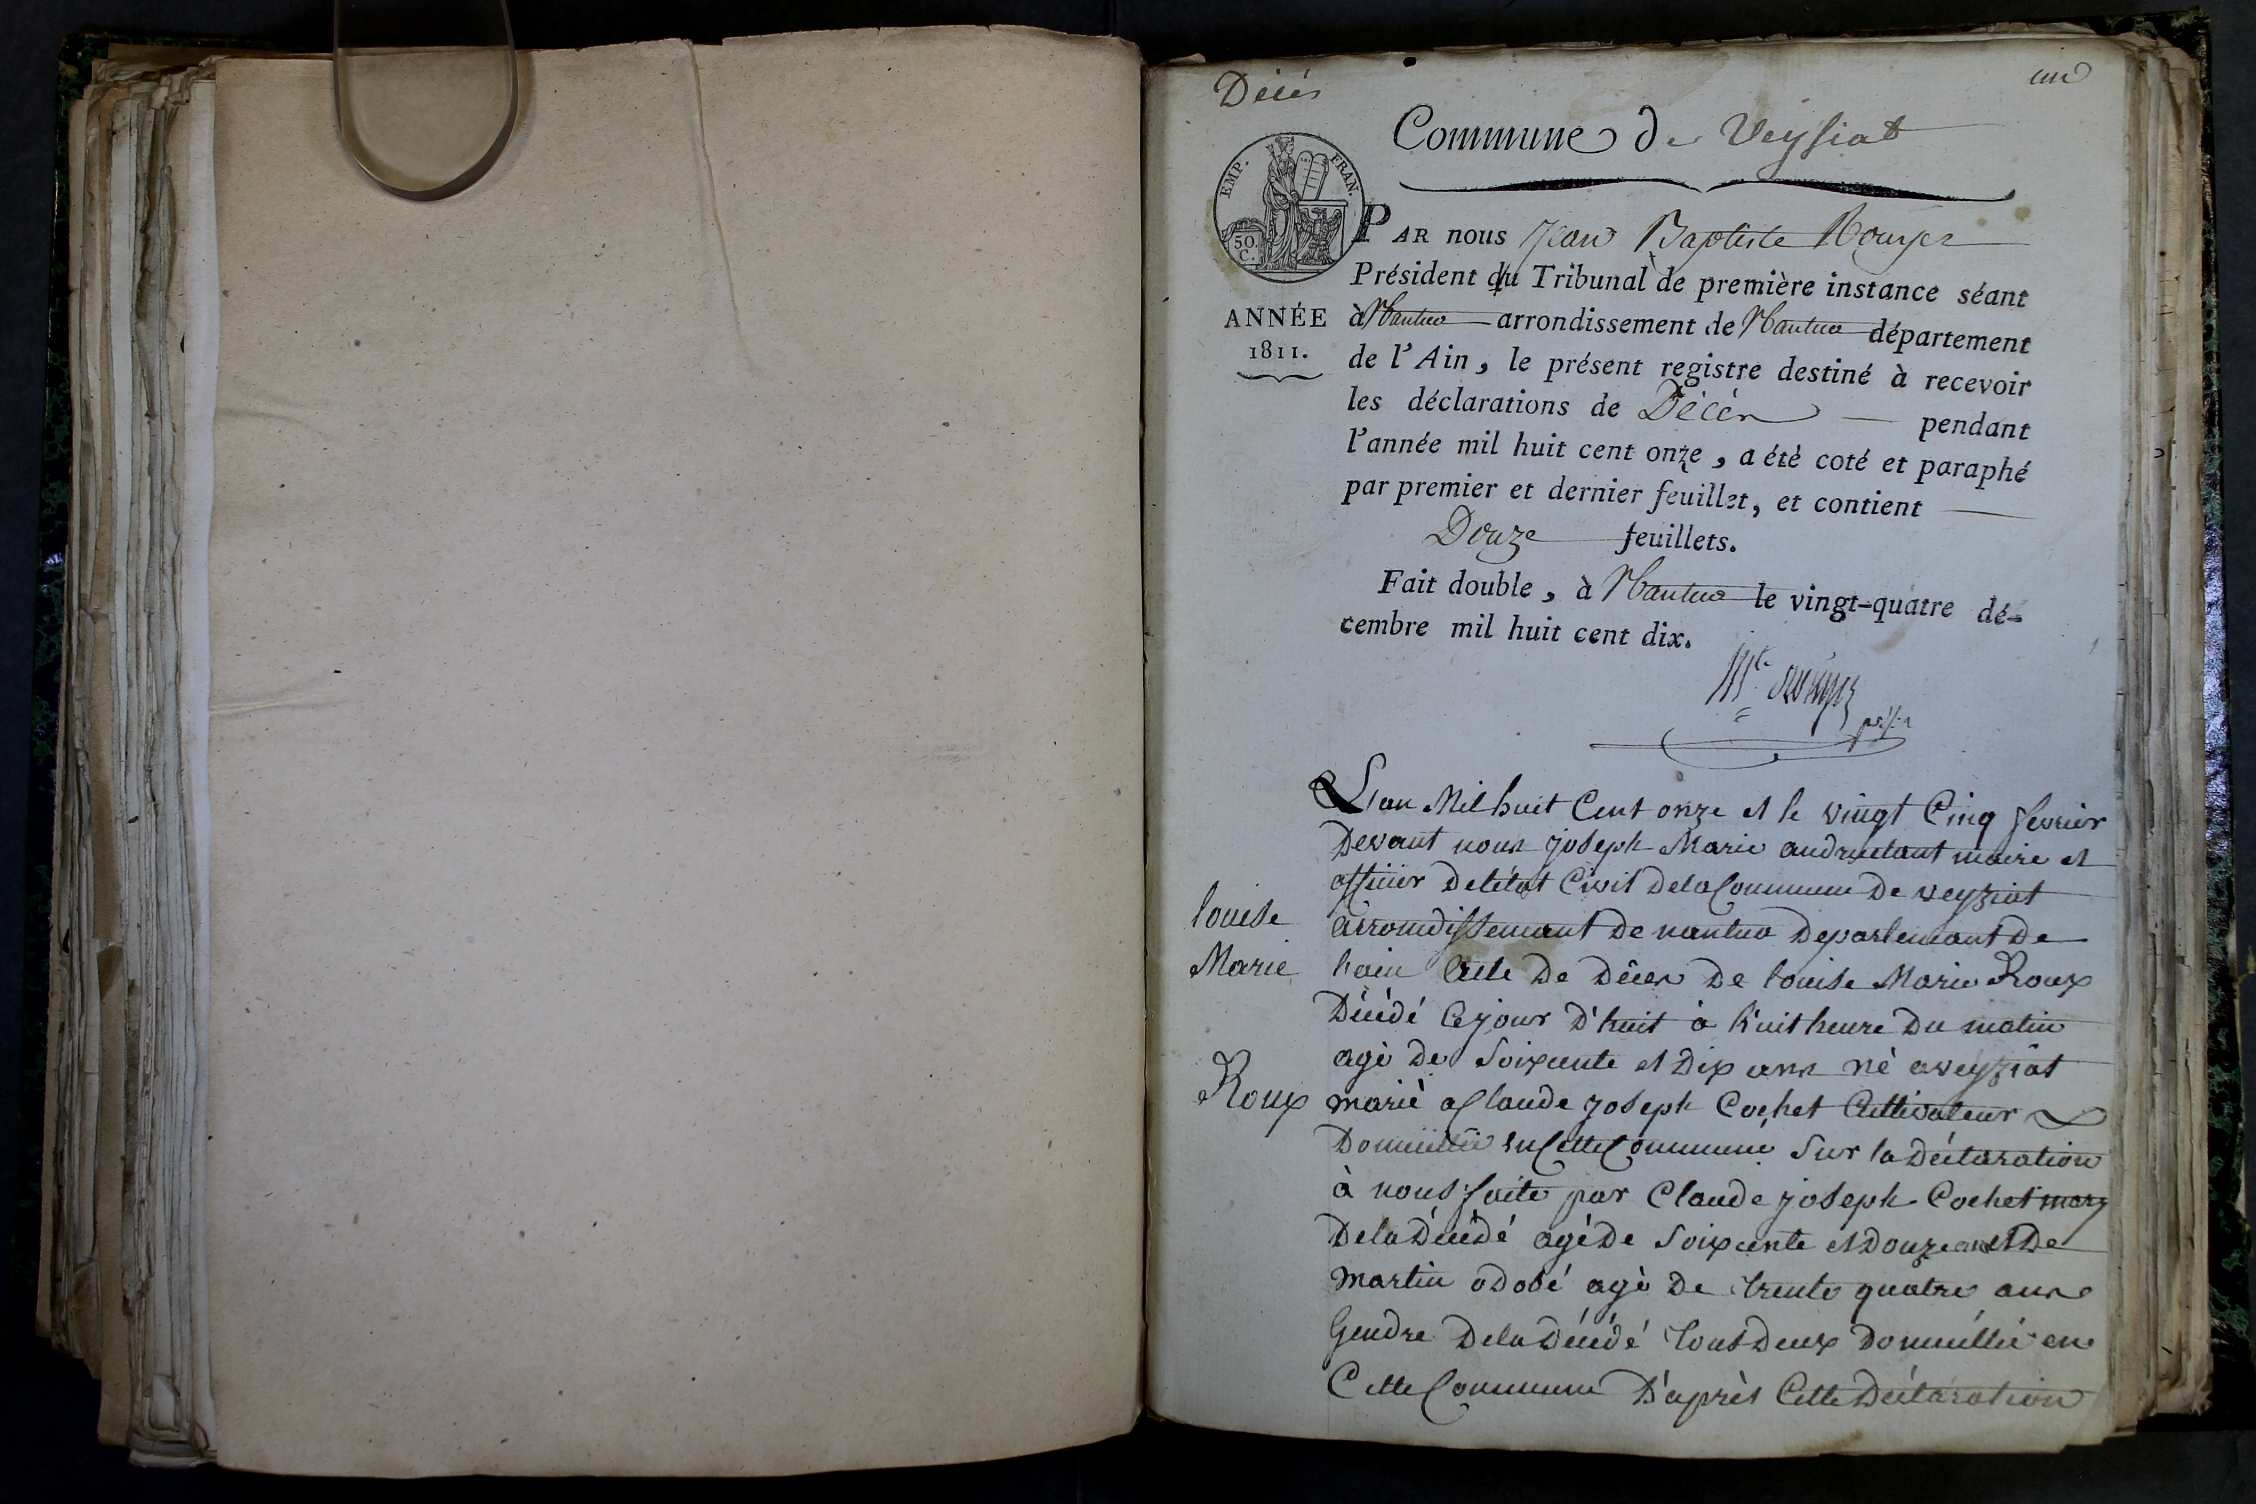 Décès
un
Commune de Veyssiat
EMP. FRAN.
50. C.
PAR nous Jean Baptiste Rouyer
Président du Tribunal de première instance séant
ANNÉE
1811.
à Nantua arrondissement de Nantua département
de l'Ain, le présent registre destiné à recevoir
les déclarations de Décès pendant
l'année mil huit cent onze, a été coté et paraphé
par premier et dernier feuillet, et contient
Douze feuillets.
Fait double, à Nantua le vingt-quatre dé-
cembre mil huit cent dix.
L'an Mil huit Cent onze et le vingt Cinq fevrier
Devant nous joseph Marie andruetant maire et
officier De létat Civil Dela Commune De veyziat
arrondissemant De nantua Departemant De
louise
Marie
Roux
lain Acte De Décès De louise Marie Roux
Décédé Cejour D'huit à huit heure Du matin
agé De Soixante et Dix ans né a veyziat
marié a Claude joseph Cochet Cultivateur
Domicillié en Cette Commune Sur la Déclaration
à nous faite par Claude joseph Cochet mary
Dela Décédé agé De Soixante et Douze ans et De
martin odobé agé De trente quatre ans
Gendre Dela Décédé tous Deux Domicillié en
Cette Commune D'après Cette Déclaration